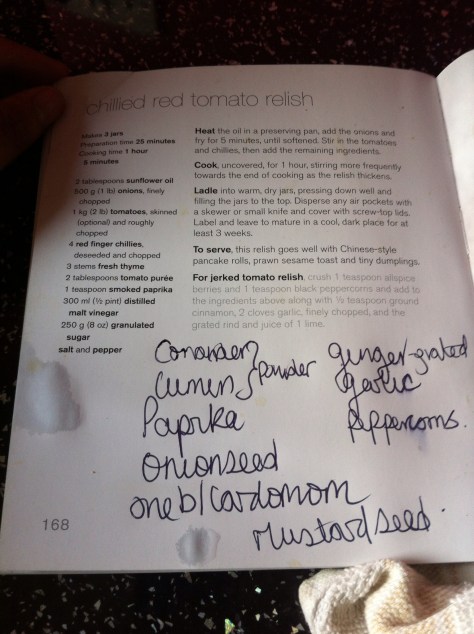 chillied red tomato relish
Makes 3 jars
Preparation time 25 minutes
Cooking time 1 hour
5 minutes
2 tablespoons sunflower oil
500 g (1 lb) onions, finely
chopped
1 kg (2 lb) tomatoes, skinned
(optional) and roughly
chopped
4 red finger chillies,
deseeded and chopped
3 stems fresh thyme
2 tablespoons tomato purée
1 teaspoon smoked paprika
300 ml (½ pint) distilled
malt vinegar
250 g (8 oz) granulated
sugar
salt and pepper
Heat the oil in a preserving pan, add the onions and
fry for 5 minutes, until softened. Stir in the tomatoes
and chillies, then add the remaining ingredients.
Cook, uncovered, for 1 hour, stirring more frequently
towards the end of cooking as the relish thickens.
Ladle into warm, dry jars, pressing down well and
filling the jars to the top. Disperse any air pockets with
a skewer or small knife and cover with screw-top lids.
Label and leave to mature in a cool, dark place for at
least 3 weeks.
To serve, this relish goes well with Chinese-style
pancake rolls, prawn sesame toast and tiny dumplings.
For jerked tomato relish, crush 1 teaspoon allspice
berries and 1 teaspoon black peppercorns and add to
the ingredients above along with ½ teaspoon ground
cinnamon, 2 cloves garlic, finely chopped, and the
grated rind and juice of 1 lime.
Coriander
Cumin
powder
Paprika
Onionseed
one bl cardomom
Mustard seed.
ginger-grated
garlic
Peppercorns.
168